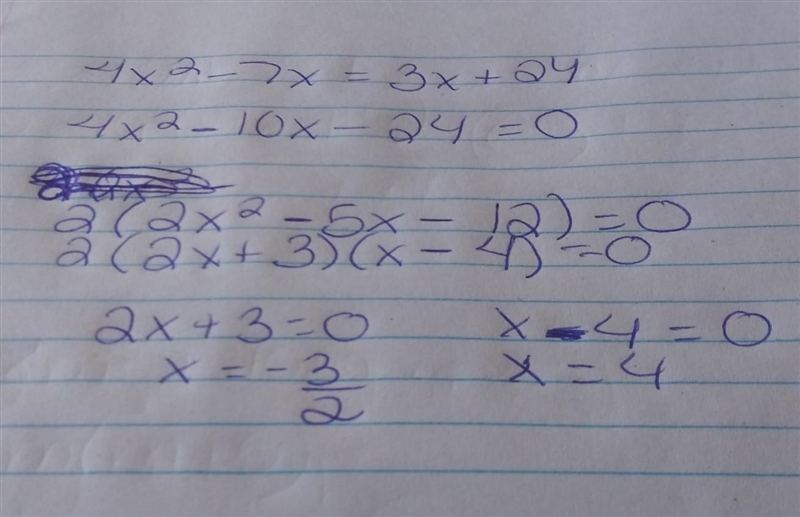 4x² - 7x = 3x + 24
4x² - 10x - 24 = 0
2(2x² - 5x - 12) = 0
2(2x + 3)(x - 4) = 0
2x + 3 = 0 x - 4 = 0
x = -3/2 x = 4